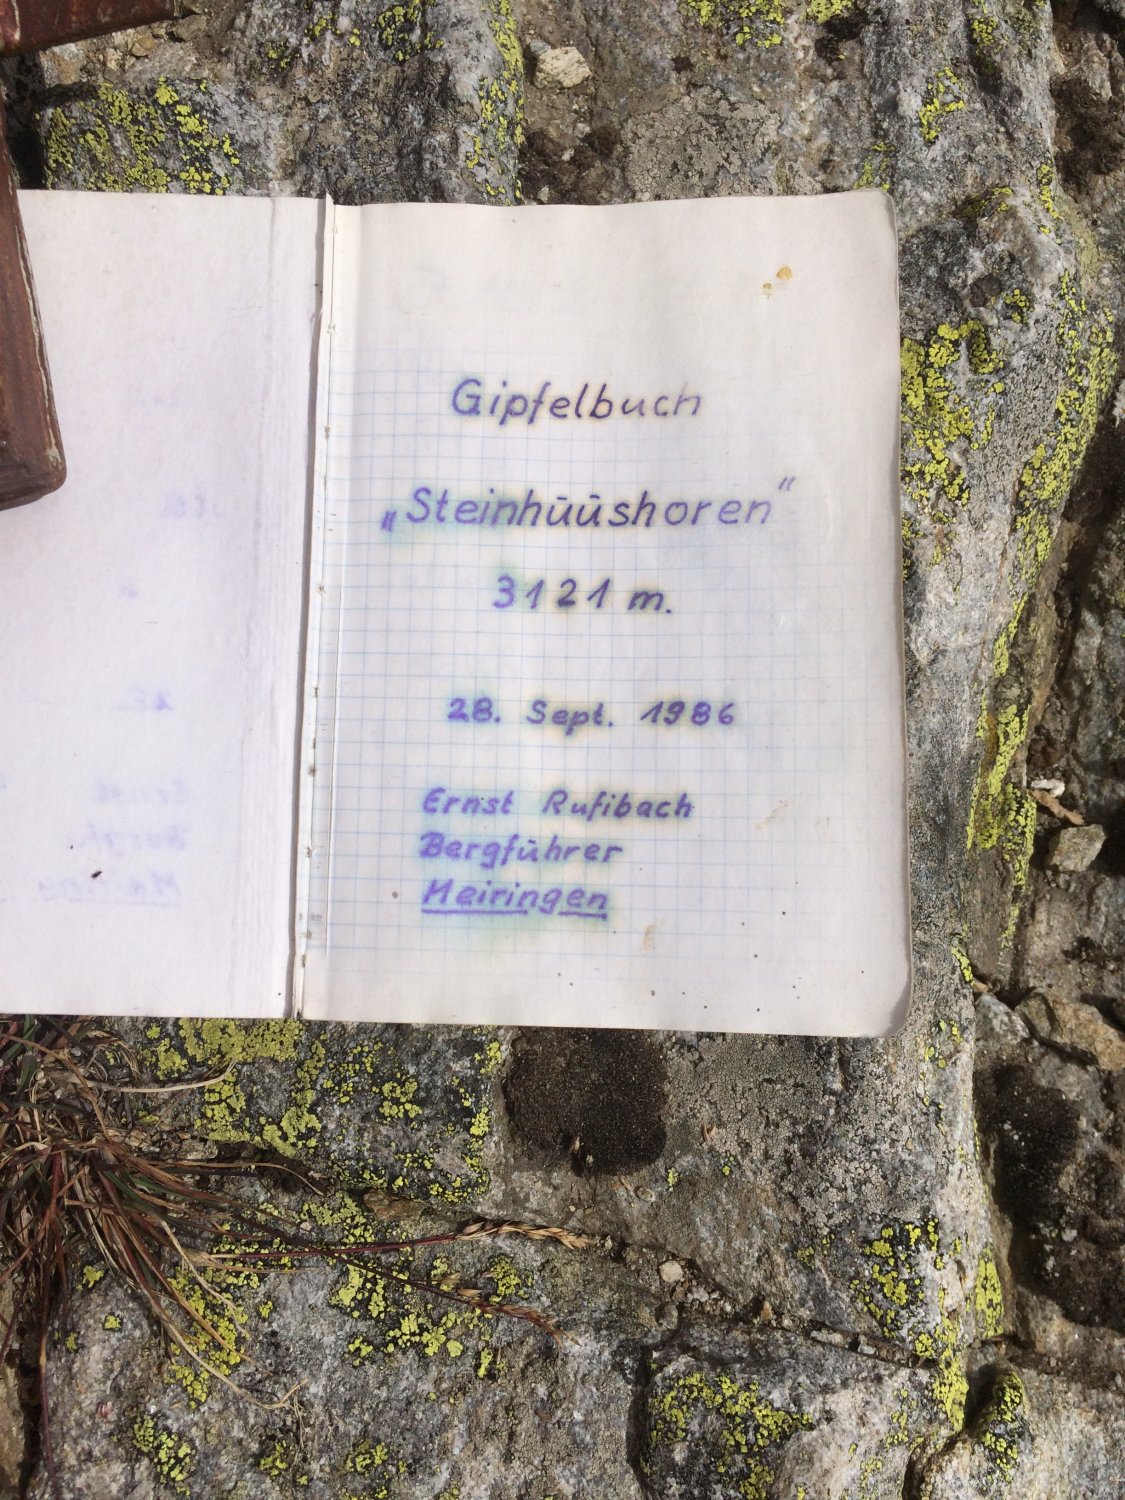 Gipfelbuch
„Steinhüüshoren“
3121 m.
28. Sept. 1986
Ernst Rufibach
Bergführer
Meiringen